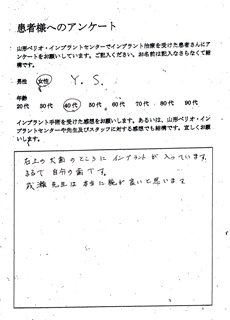 患者様へのアンケート
山形ペリオ・インプラントセンターでインプラント治療を受けた患者さんにア
ンケートをお願いしています。ご記入ください。お名前は記入なさらなくて結
構です。
男性 女性 Y. S.
年齢
20代 30代 40代 50代 60代 70代 80代 90代
インプラント手術を受けた感想をお願いします。あるいは、山形ペリオ・イン
プラントセンターや先生及びスタッフに対する感想でも結構です。宜しくお願
いします。
右上の犬歯のところに インプラントが 入っています。
まるで 自分の歯です。
成瀬先生は 本当に腕が良いと思います